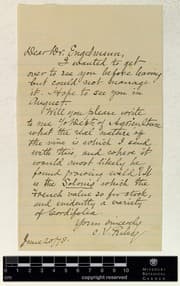 Dear Dr. Engelmann,
I wanted to get
over to see you before leaving
but could not manage
it. Hope to see you in
August.
Will you please write
to me % Dept of Agriculture
what the real nature of
the vine is which I send
with this, and where it
would most likely be
found growing wild. It
is the Solonis which the
French value so for stock,
and evidently a variety
of Cordifolia.
Yours sincerely
C. V. Riley
June 20/78.
MISSOURI
BOTANICAL
GARDEN
copyright reserved